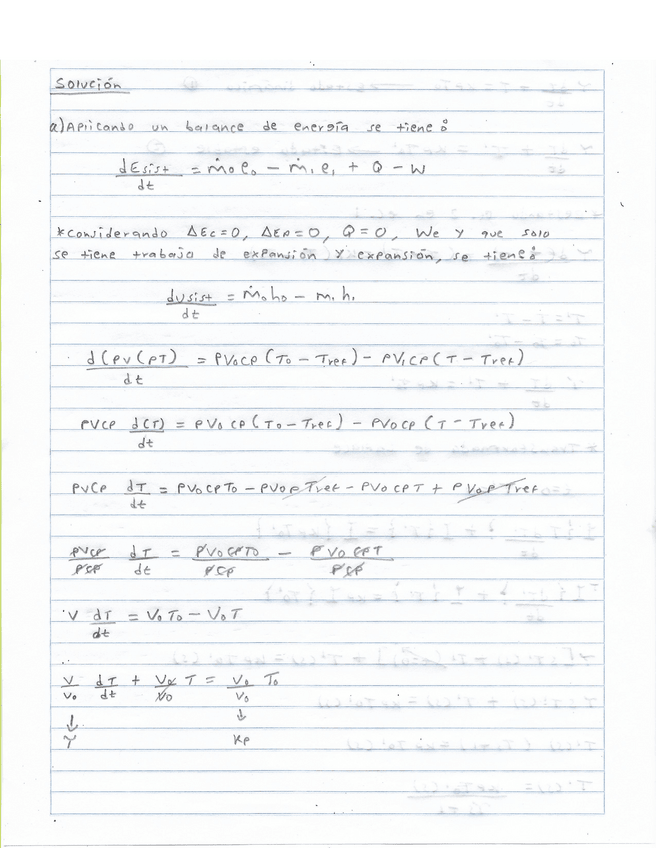 Solución
a) Aplicando un balance de energía se tiene:
dEsist/dt = ṁ₀e₀ − ṁ₁e₁ + Q − W
*Considerando ΔEc=0, ΔEp=0, Q=0, We y que solo
se tiene trabajo de expansión y expansión, se tiene:
dUsist/dt = ṁ₀h₀ − m₁h₁
d(ρV(ρT)/dt = ρV₀CP(T₀ − Tref) − ρV₁CP(T − Tref)
ρVCP d(T)/dt = ρV₀CP(T₀ − Tref) − ρV₀CP(T − Tref)
ρVCP dT/dt = ρV₀CPT₀ − ρV₀ρTref − ρV₀CPT + ρV₀ρTref
ρVCP/ρCP dT/dt = ρV₀CPT₀/ρCP − ρV₀CPT/ρCP
V dT/dt = V₀T₀ − V₀T
V/V₀ dT/dt + V₀/V₀ T = V₀/V₀ T₀
↓ ↓
τ Kp